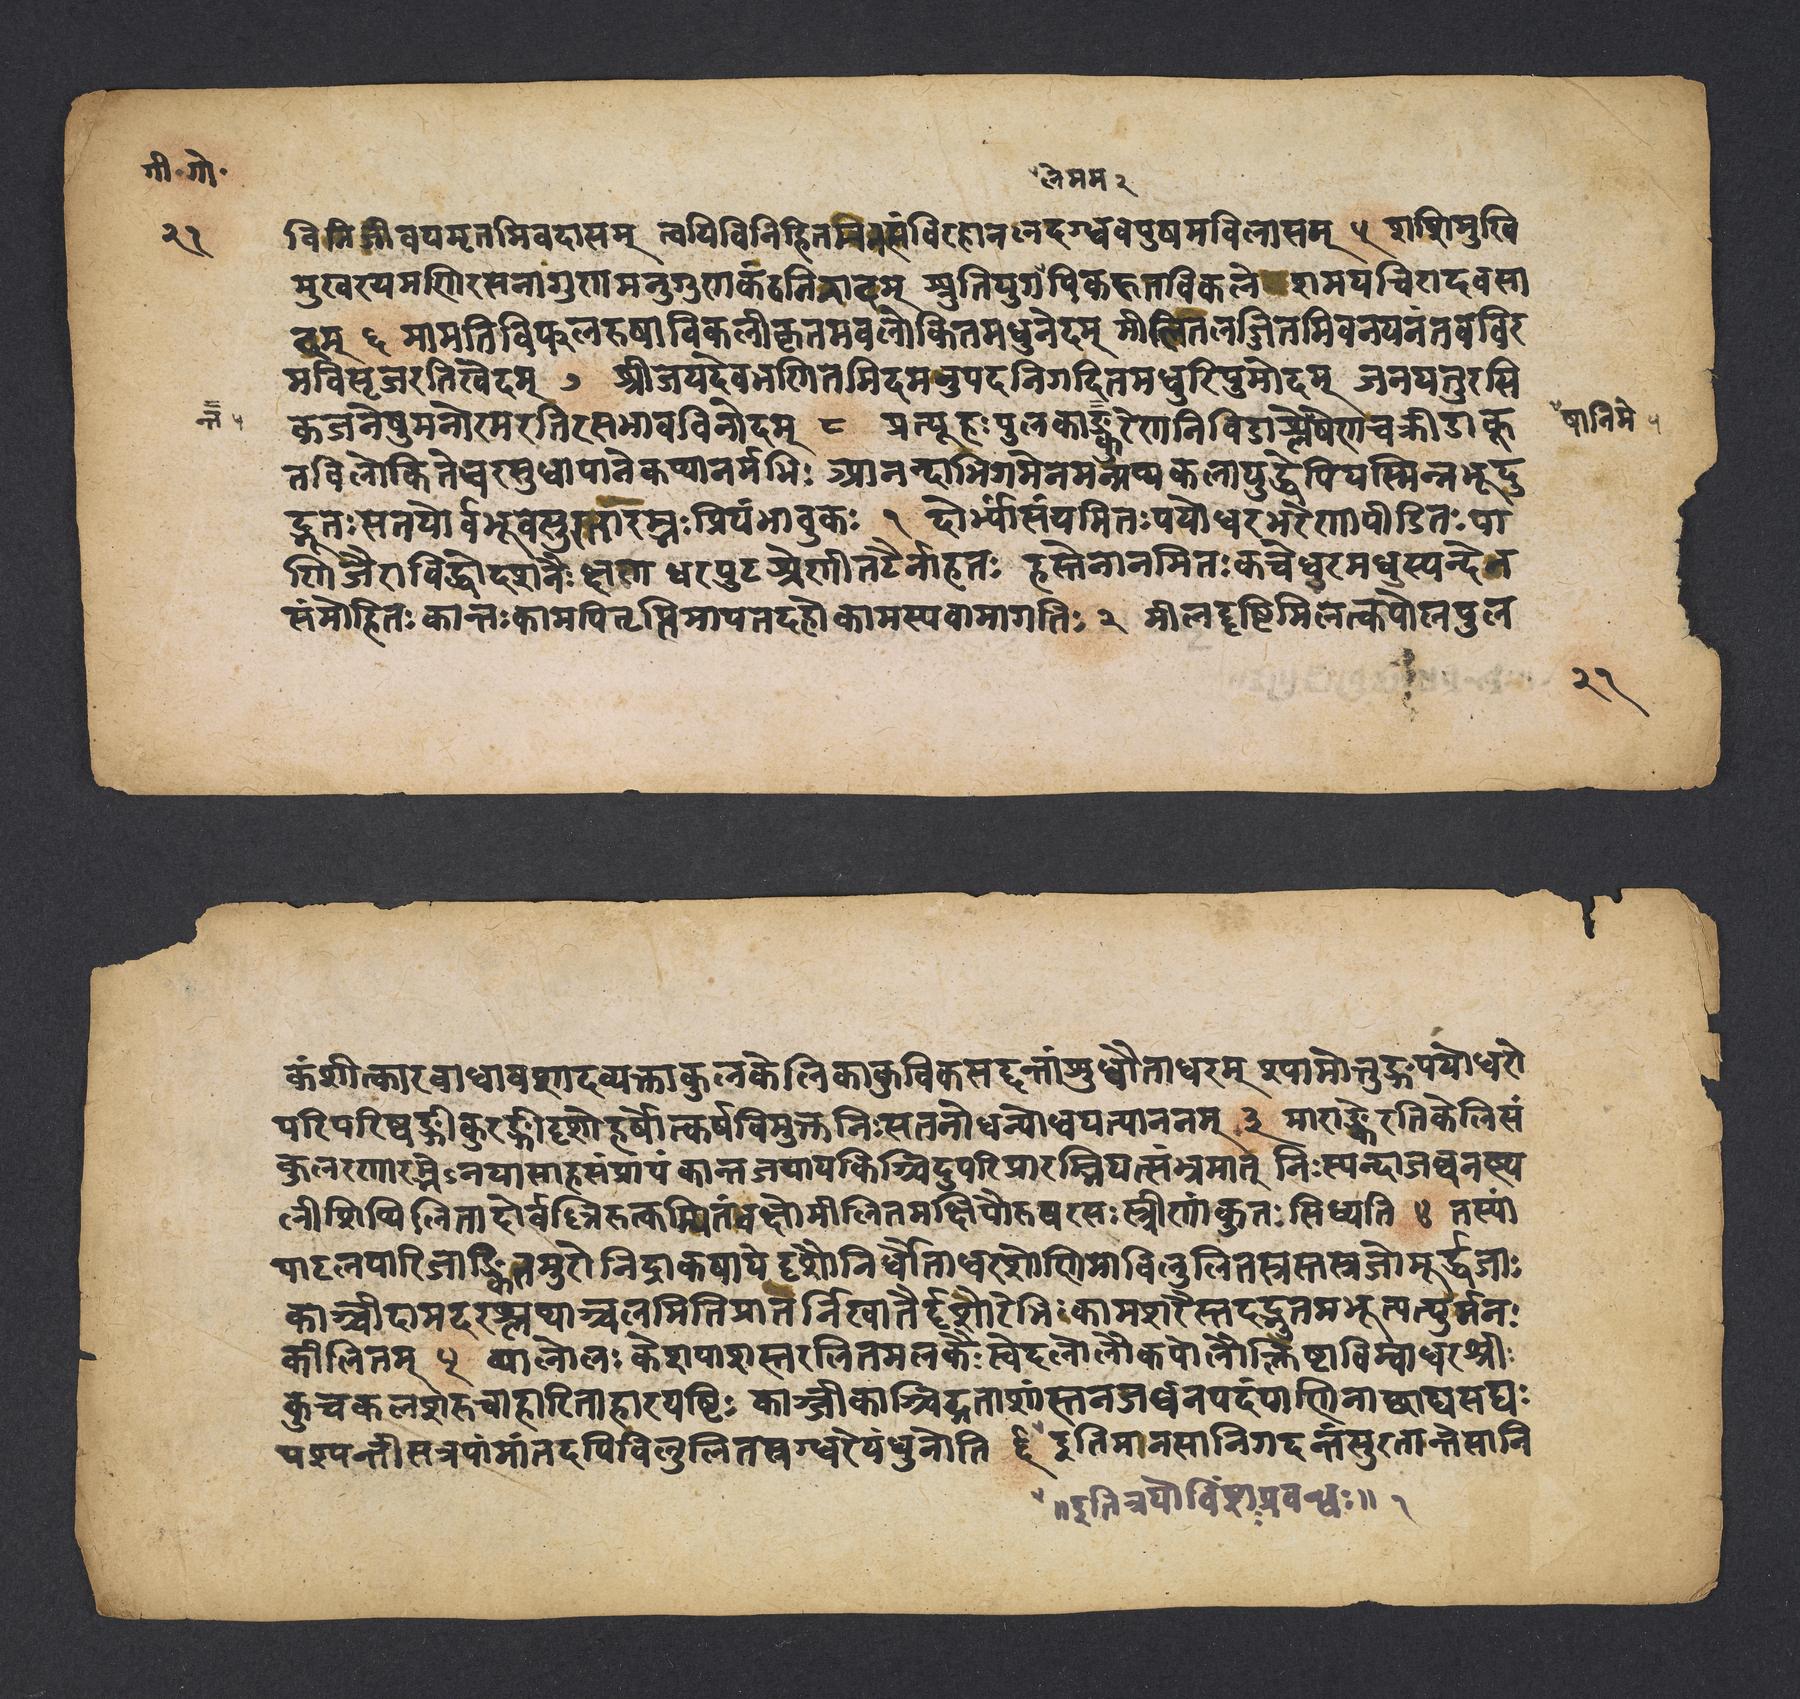 गी॰गो॰
लेमम २
२१
विनिजीवयमृतमिवदासम् त्वयिविनिहितमनसंविरहानलदग्धवपुषमविलासम् ५ शशिमुखि
मुखरयमणिरसनागुणमनुगुणकंठनिनादम् श्रुतियुगपिकरुतविकले शमयचिरादवसा
दम् ६ मामतिविफलरुषाविकलीकृतमवलोकितमधुनेदम् मीलितलज्जितमिवनयनंतवविर
मविसृजरतिखेदम् ७ श्रीजयदेवभणितमिदमनुपदनिगदितमधुरिपुमोदम् जनयतुरसि
कजनेषुमनोरमरतिरसभावविनोदम् ८ प्रत्यूहःपुलकाङ्कुरेणनिविडाश्लेषेणचक्रीडाकू
षानिमे ५
तविलोकितेधरसुधापानेकथानर्मभिः आनन्दाभिगमेनमन्मथकलायुद्धेपियस्मिन्नभूदु
द्भूतःसतयोर्बभूवसुरतारम्भःप्रियंभावुकः १ दोर्भ्यांसंयमितःपयोधरभरेणापीडितःपा
णिजैराविद्धोदशनैःक्षताधरपुटःश्रोणीतटेनाहतः हस्तेनानमितःकचेधरमधुस्यन्देन
संमोहितःकान्तःकामपितृप्तिमापतदहोकामस्यवामागतिः २ मीलद्दृष्टिमिलत्कपोलपुल
२१
कंशीत्कारबाधावशादव्यक्ताकुलकेलिकाकुविकसद्दन्तांसुधौताधरम् श्यामोत्तुङ्गपयोधरो
परिपरिष्वङ्गीकुरङ्गीदृशोहर्षोत्कर्षविमुक्तनिःसतनोधन्योधयत्याननम् ३ माराङ्केरतिकेलिसं
कुलरणारम्भेऽनयासाहसंप्रायंकान्तजयायकिञ्चिदुपरिप्रारम्भियत्संभ्रमात् निःस्पन्दाजघनस्थ
लीशिथिलितादोर्वल्लिरुत्कम्पितंवक्षोमीलितमक्षिपौरुषरसःस्त्रीणांकुतःसिध्यति ४ तस्यां
पाटलपाणिजाङ्कितमुरोनिद्राकषायेदृशौनिर्धौतोधरशोणिमाविलुलितस्रस्तस्रजोमूर्द्धजाः
काञ्चीदामदरश्लथाञ्चलमितिप्रातर्निखातैर्दृशोरेभिःकामशरैस्तदद्भुतमभूत्पत्युर्मनः
कीलितम् ५ व्यालोलःकेशपाशस्तरलितमलकैःस्वेदलोलौकपोलौक्लिष्टाबिम्बाधरश्रीः
कुचकलशरुचाहारिताहारयष्टिः काञ्चीकाञ्चिद्गताशांस्तनजघनपदंपाणिनाच्छाद्यसद्यः
पश्यन्तीसत्रपंमांतदपिविलुलितस्रग्धरेयंधुनोति ६ इतिमनसानिगदन्तंसुरतान्तेसानि
॥इतित्रयोविंशःप्रबन्धः॥ १